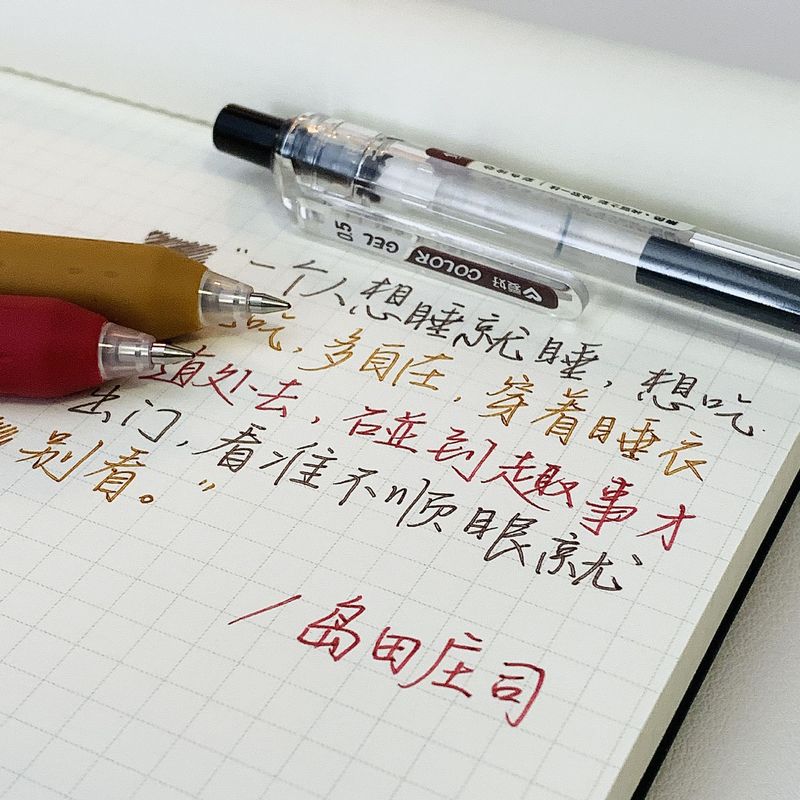 “一个人想睡就睡，想吃
吃，多自在，穿着睡衣
处去，碰到趣事才
出门，看谁不顺眼就
别看。”
/岛田庄司
爱好 COLOR GEL 05